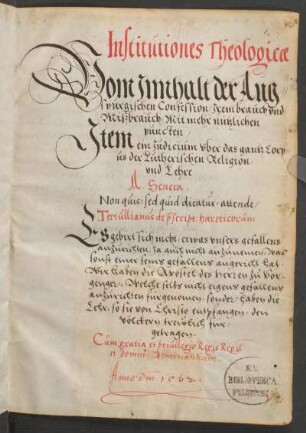 Institutiones Theologicæ
Vom Innhalt der Aug
spurgischen Confession, Irem brauch vnd
Mißbrauch Mit mehr nutzlichen
puncten
Item
ein Judicium vber das gantz Corp
us der Lutherischen Religion
vnd Lehre
Seneca
Non quis, sed quid dicatur, attende
Tertullianus de p̃script: hæreticorum
Es gebürt sich nicht etwas vnsers gefallens
anzurichten, Ja auch nicht anzunemen, was
sonst einer seins gefallens angericht hat
Wir haben die Apostel des Herren zu Vor
genger, Welche selbs nicht eigens gefallens
anzurichten fürgenomen, sonder haben die
Lehr, so sie von Christo entpfangen, den
völckern trewlich für
getragen
Cum gratia et priuilegio Regis Regũ
et domini dominantium
Anno dm 1562
BIBLIOTHECA